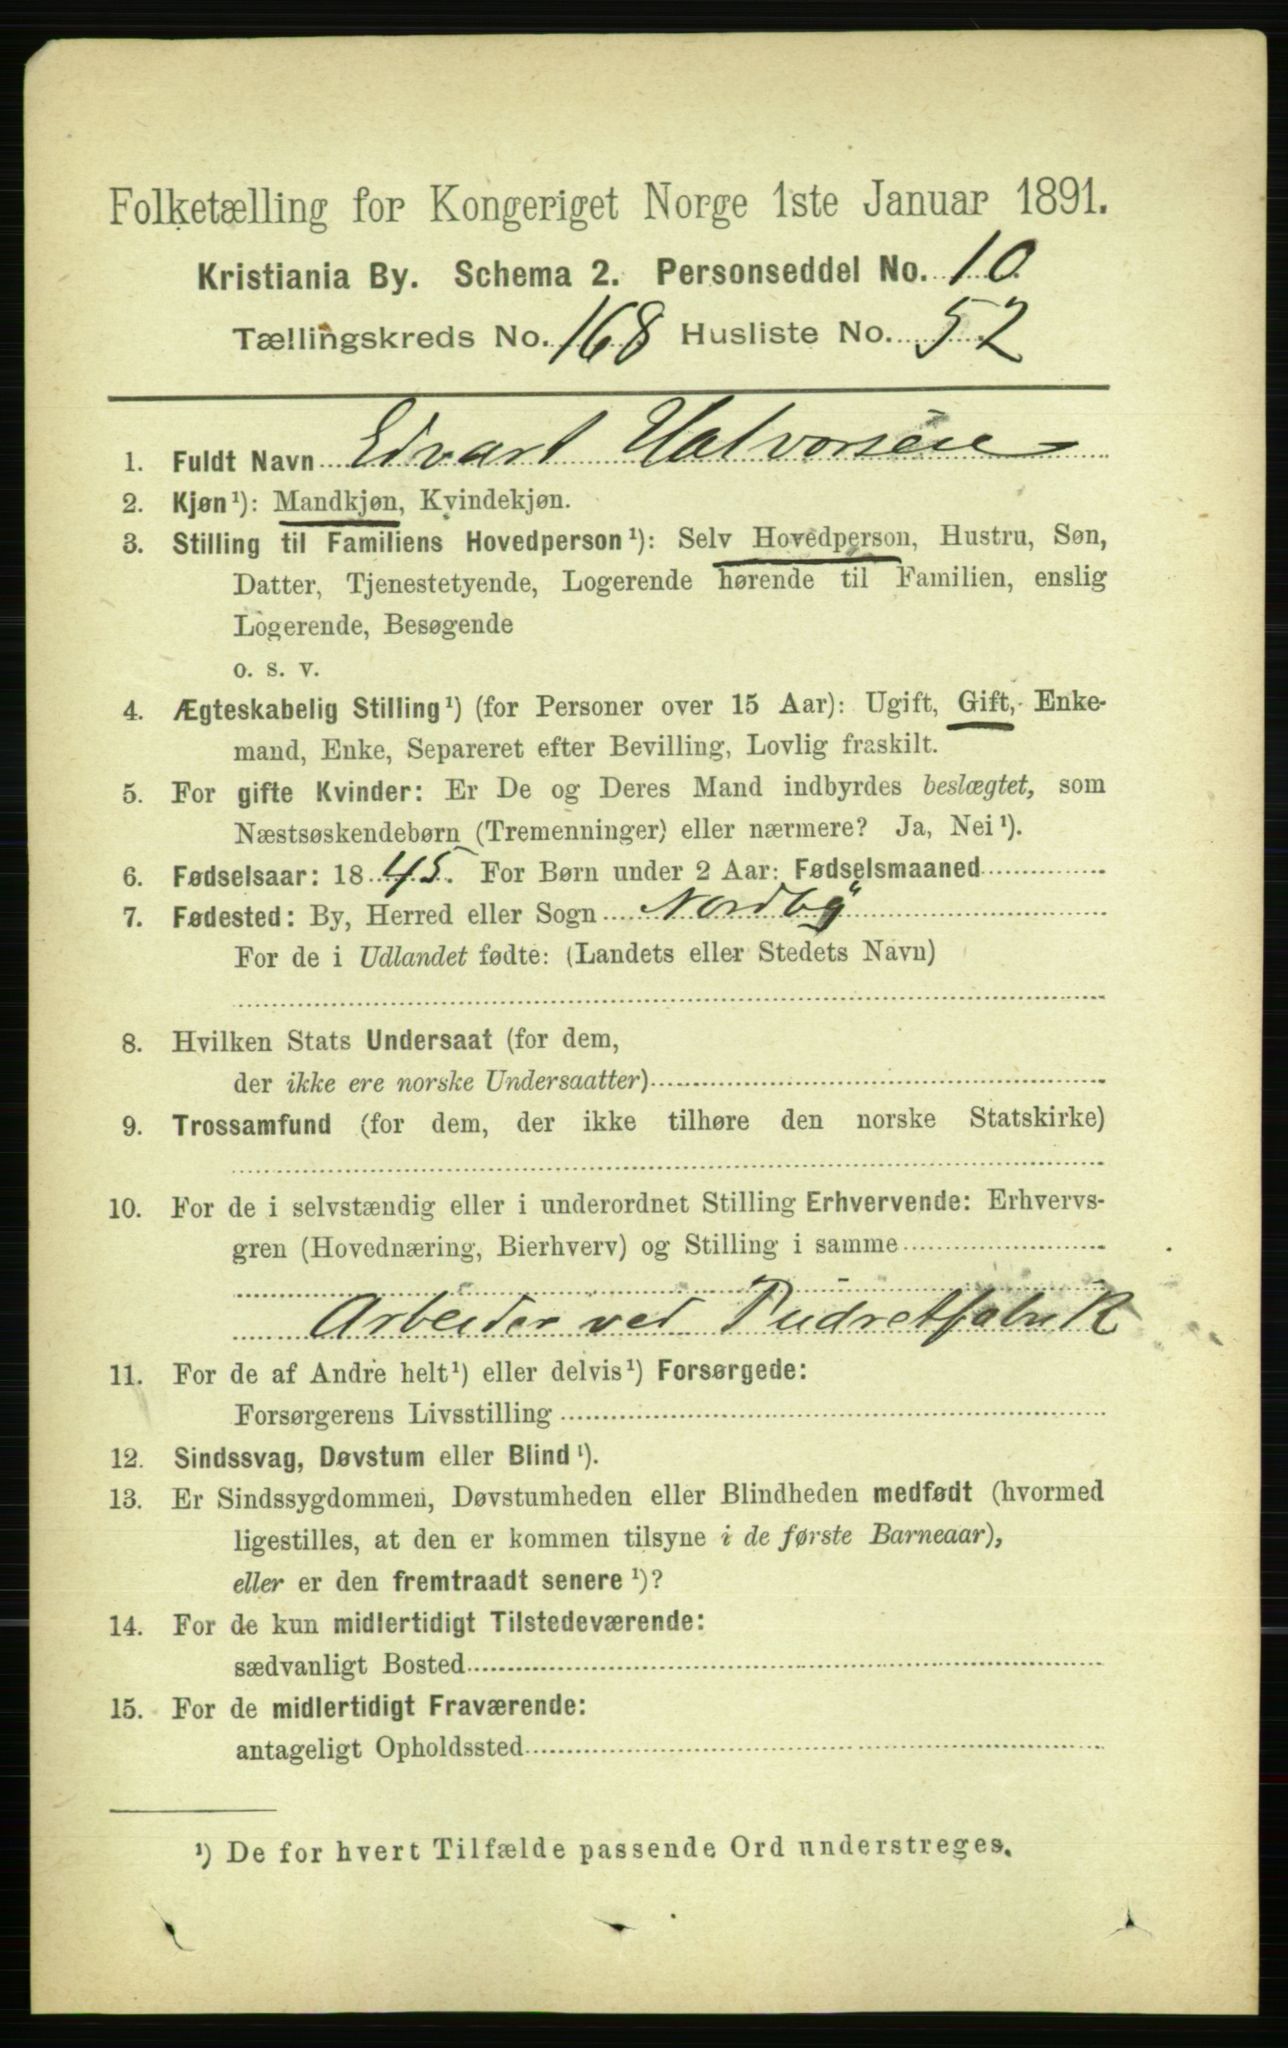 Folketælling for Kongeriget Norge 1ste Januar 1891.
Kristiania By. Schema 2. Personseddel No. 10
Tællingskreds No. 168 Husliste No. 52
1. Fuldt Navn Edvart Halvorsen
2. Kjøn¹): Mandkjøn, Kvindekjøn.
3. Stilling til Familiens Hovedperson¹): Selv Hovedperson, Hustru, Søn,
Datter, Tjenestetyende, Logerende hørende til Familien, enslig
Logerende, Besøgende
o. s. v.
4. Ægteskabelig Stilling¹) (for Personer over 15 Aar): Ugift, Gift, Enke-
mand, Enke, Separeret efter Bevilling, Lovlig fraskilt.
5. For gifte Kvinder: Er De og Deres Mand indbyrdes beslægtet, som
Næstsøskendebørn (Tremenninger) eller nærmere? Ja, Nei¹).
6. Fødselsaar: 1845. For Børn under 2 Aar: Fødselsmaaned
7. Fødested: By, Herred eller Sogn Nordby
For de i Udlandet fødte: (Landets eller Stedets Navn)
8. Hvilken Stats Undersaat (for dem,
der ikke ere norske Undersaatter)
9. Trossamfund (for dem, der ikke tilhøre den norske Statskirke)
10. For de i selvstændig eller i underordnet Stilling Erhvervende: Erhvervs-
gren (Hovednæring, Bierhverv) og Stilling i samme
Arbeider ved Pudretfabrik
11. For de af Andre helt¹) eller delvis¹) Forsørgede:
Forsørgerens Livsstilling
12. Sindssvag, Døvstum eller Blind¹).
13. Er Sindssygdommen, Døvstumheden eller Blindheden medfødt (hvormed
ligestilles, at den er kommen tilsyne i de første Barneaar),
eller er den fremtraadt senere¹)?
14. For de kun midlertidigt Tilstedeværende:
sædvanligt Bosted
15. For de midlertidigt Fraværende:
antageligt Opholdssted
¹) De for hvert Tilfælde passende Ord understreges.